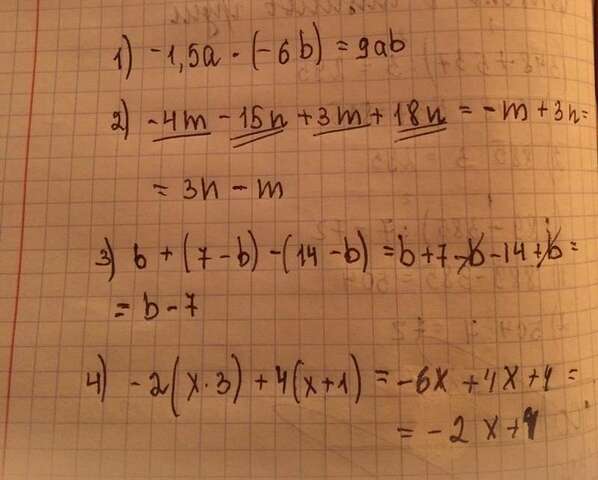 1) -1,5a · (-6b) = 9ab
2) -4m - 15n + 3m + 18n = -m + 3n =
= 3n - m
3) b + (7 - b) - (14 - b) = b + 7 - b - 14 + b =
= b - 7
4) -2(x · 3) + 4(x + 1) = -6x + 4x + 4 =
= -2x + 4